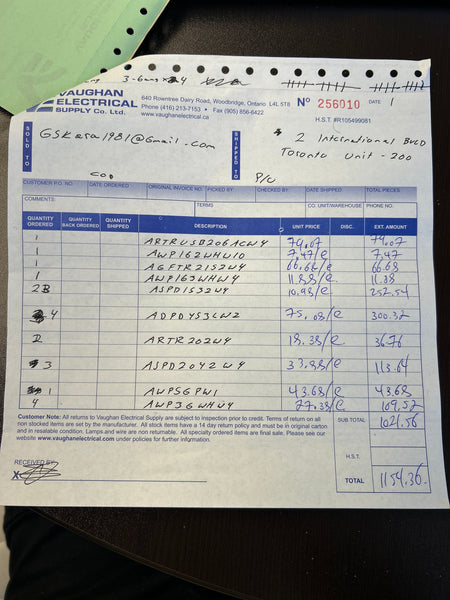 3-6
VAUGHAN
ELECTRICAL
SUPPLY Co. Ltd.
640 Rowntree Dairy Road, Woodbridge, Ontario L4L 5T8
Phone (416) 213-7153 • Fax (905) 856-6422
www.vaughanelectrical.ca
Nº 256010 DATE
H.S.T. #R105499081
SOLD TO
GSKara1981@Gmail.com
COD
SHIPPED TO
2 International BLVD
Toronto Unit-200
P/U
CUSTOMER P.O. NO. DATE ORDERED ORIGINAL INVOICE NO. PICKED BY CHECKED BY DATE SHIPPED TOTAL PIECES
COMMENTS: TERMS CO. UNIT/WAREHOUSE PHONE NO.
QUANTITY ORDERED QUANTITY BACK ORDERED QUANTITY SHIPPED DESCRIPTION UNIT PRICE DISC. EXT. AMOUNT
1 ARTRUSB206ACW4 79.07 79.07
1 AWP162WHW10 7.47/e 7.47
1 AGFTR2152W4 66.68/e 66.68
1 AWP163WHW4 11.88/e 11.88
23 ASPD1532W4 10.98/e 252.54
4 ADPDY53CW2 75.08/e 300.32
2 ARTR202W4 18.38/e 36.76
3 ASPD2042W4 33.88/e 113.64
1 AWP5GPW1 43.68/e 43.68
4 AWP3GWHW4 27.38/e 109.52
Customer Note: All returns to Vaughan Electrical Supply are subject to inspection prior to credit. Terms of return on all
non stocked items are set by the manufacturer. All stock items have a 14 day return policy and must be in original carton
and in resalable condition. Lamps and wire are non returnable. All specialty ordered items are final sale. Please see our
website www.vaughanelectrical.com under policies for further information.
SUB TOTAL 1021.56
H.S.T.
TOTAL 1154.36
RECEIVED BY
X